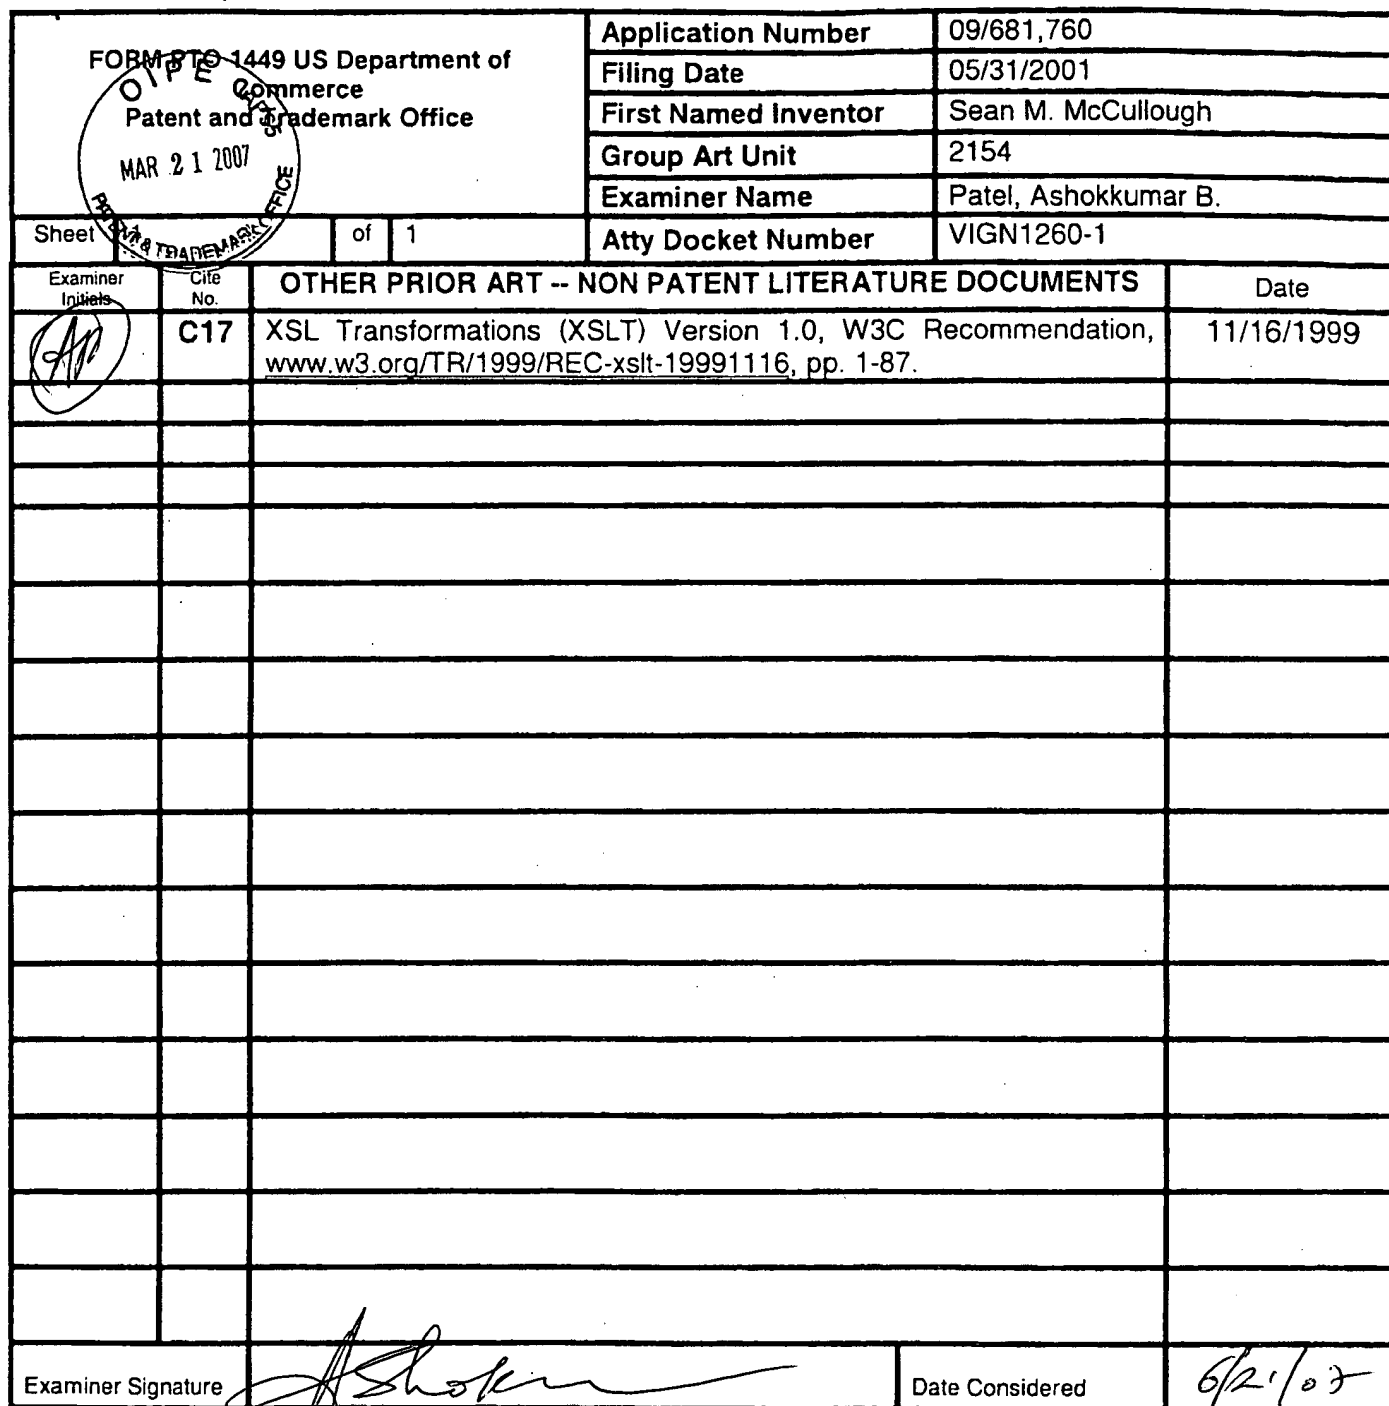 FORM PTO 1449 US Department of
Commerce
Patent and Trademark Office
OIPE
MAR 21 2007
PATENT & TRADEMARK OFFICE
Application Number 09/681,760
Filing Date 05/31/2001
First Named Inventor Sean M. McCullough
Group Art Unit 2154
Examiner Name Patel, Ashokkumar B.
Sheet 1 of 1 Atty Docket Number VIGN1260-1
Examiner Initials Cite No. OTHER PRIOR ART -- NON PATENT LITERATURE DOCUMENTS Date
AP C17 XSL Transformations (XSLT) Version 1.0, W3C Recommendation, 11/16/1999
www.w3.org/TR/1999/REC-xslt-19991116, pp. 1-87.
Examiner Signature Ashok Date Considered 6/21/07